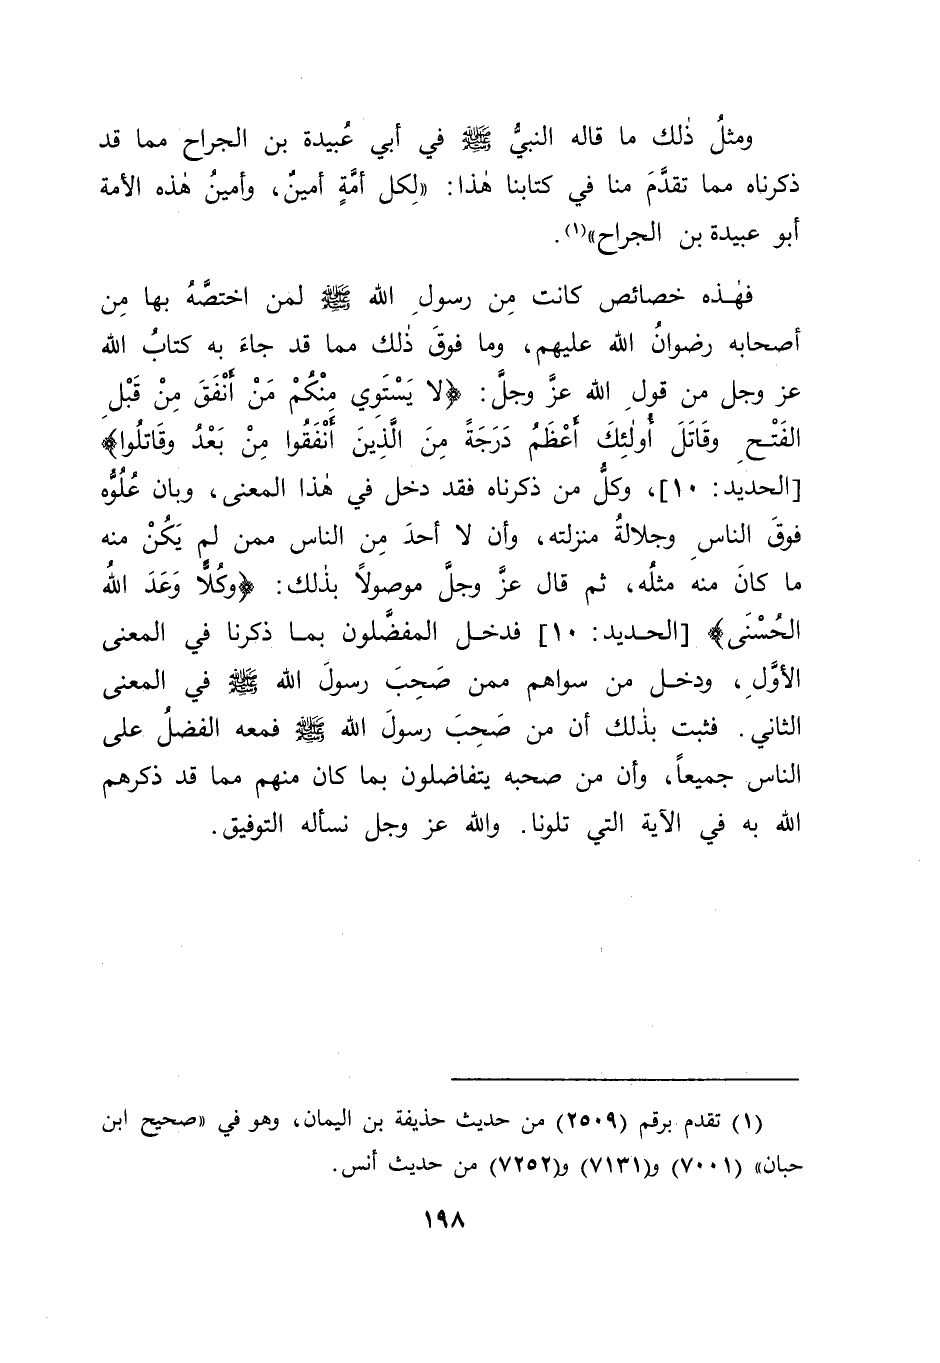 ومثلُ ذٰلك ما قاله النبيُّ ﷺ في أبي عُبيدة بن الجراح مما قد
ذكرناه مما تقدَّمَ منا في كتابنا هٰذا: «لِكل أمَّةٍ أمينٌ، وأمينُ هٰذه الأمة
أبو عبيدة بن الجراح»(١).
فهٰذه خصائص كانت مِن رسولِ الله ﷺ لمن اختصَّهُ بها مِن
أصحابه رضوانُ الله عليهم، وما فوقَ ذٰلك مما قد جاءَ به كتابُ الله
عز وجل من قولِ الله عزَّ وجلَّ: ﴿لا يَسْتَوِي مِنْكُمْ مَنْ أَنْفَقَ مِنْ قَبْلِ
الفَتْحِ وقَاتَلَ أُولٰئِكَ أَعْظَمُ دَرَجَةً مِنَ الَّذِينَ أَنْفَقُوا مِنْ بَعْدُ وقَاتلُوا﴾
[الحديد: ١٠]، وكلُّ من ذكرناه فقد دخل في هٰذا المعنى، وبان عُلُوُّه
فوقَ الناسِ وجلالةُ منزلته، وأن لا أحدَ مِن الناس ممن لم يَكُنْ منه
ما كانَ منه مثلُه، ثم قال عزَّ وجلَّ موصولاً بذٰلك: ﴿وكُلًّا وَعَدَ اللهُ
الحُسْنَى﴾ [الحديد: ١٠] فدخل المفضَّلون بما ذكرنا في المعنى
الأوَّلِ، ودخل من سواهم ممن صَحِبَ رسولَ الله ﷺ في المعنى
الثاني. فثبت بذٰلك أن من صَحِبَ رسولَ الله ﷺ فمعه الفضلُ على
الناس جميعاً، وأن من صحبه يتفاضلون بما كان منهم مما قد ذكرهم
الله به في الآية التي تلونا. والله عز وجل نسأله التوفيق.
(١) تقدم برقم (٢٥٠٩) من حديث حذيفة بن اليمان، وهو في «صحيح ابن
حبان» (٧٠٠١) و(٧١٣١) و(٧٢٥٢) من حديث أنس.
١٩٨